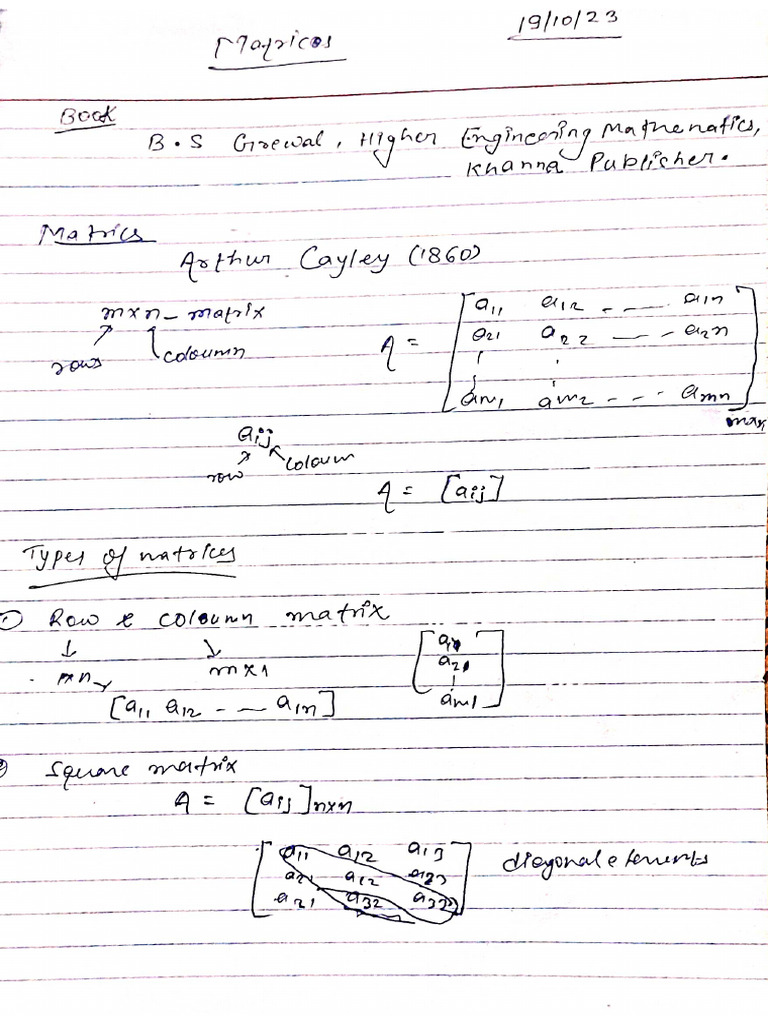 19/10/23
Matrices
Book
B.S Grewal, Higher Engineering Mathematics,
Khanna Publisher.
Matrics
Arthur Cayley (1860)
m×n - matrix
rows coloumn
A = [a11 a12 - - - a1n
a21 a22 - - - a2n
am1 am2 - - - amn]
aij
row coloum
A = [aij]
Types of matrices
① Row & coloumn matrix
m×1
[a11 a12 - - a1n]
am1
Square matrix
A = [aij]n×n
[a11 a12 a13
a21 a12 a23
a21 a32 a33]
diagonal elements